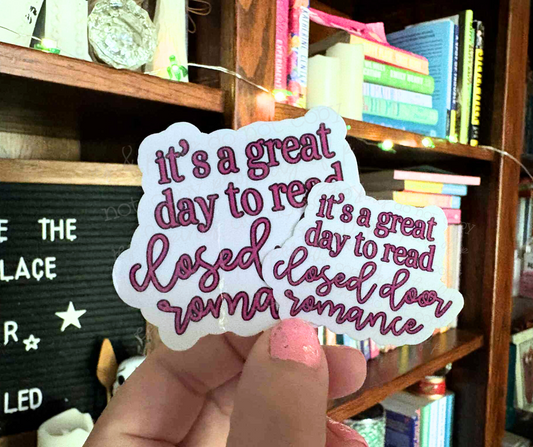 it's a great
day to read
closed
roma
it's a great
day to read
closed door
romance
E THE
LACE
R
LED